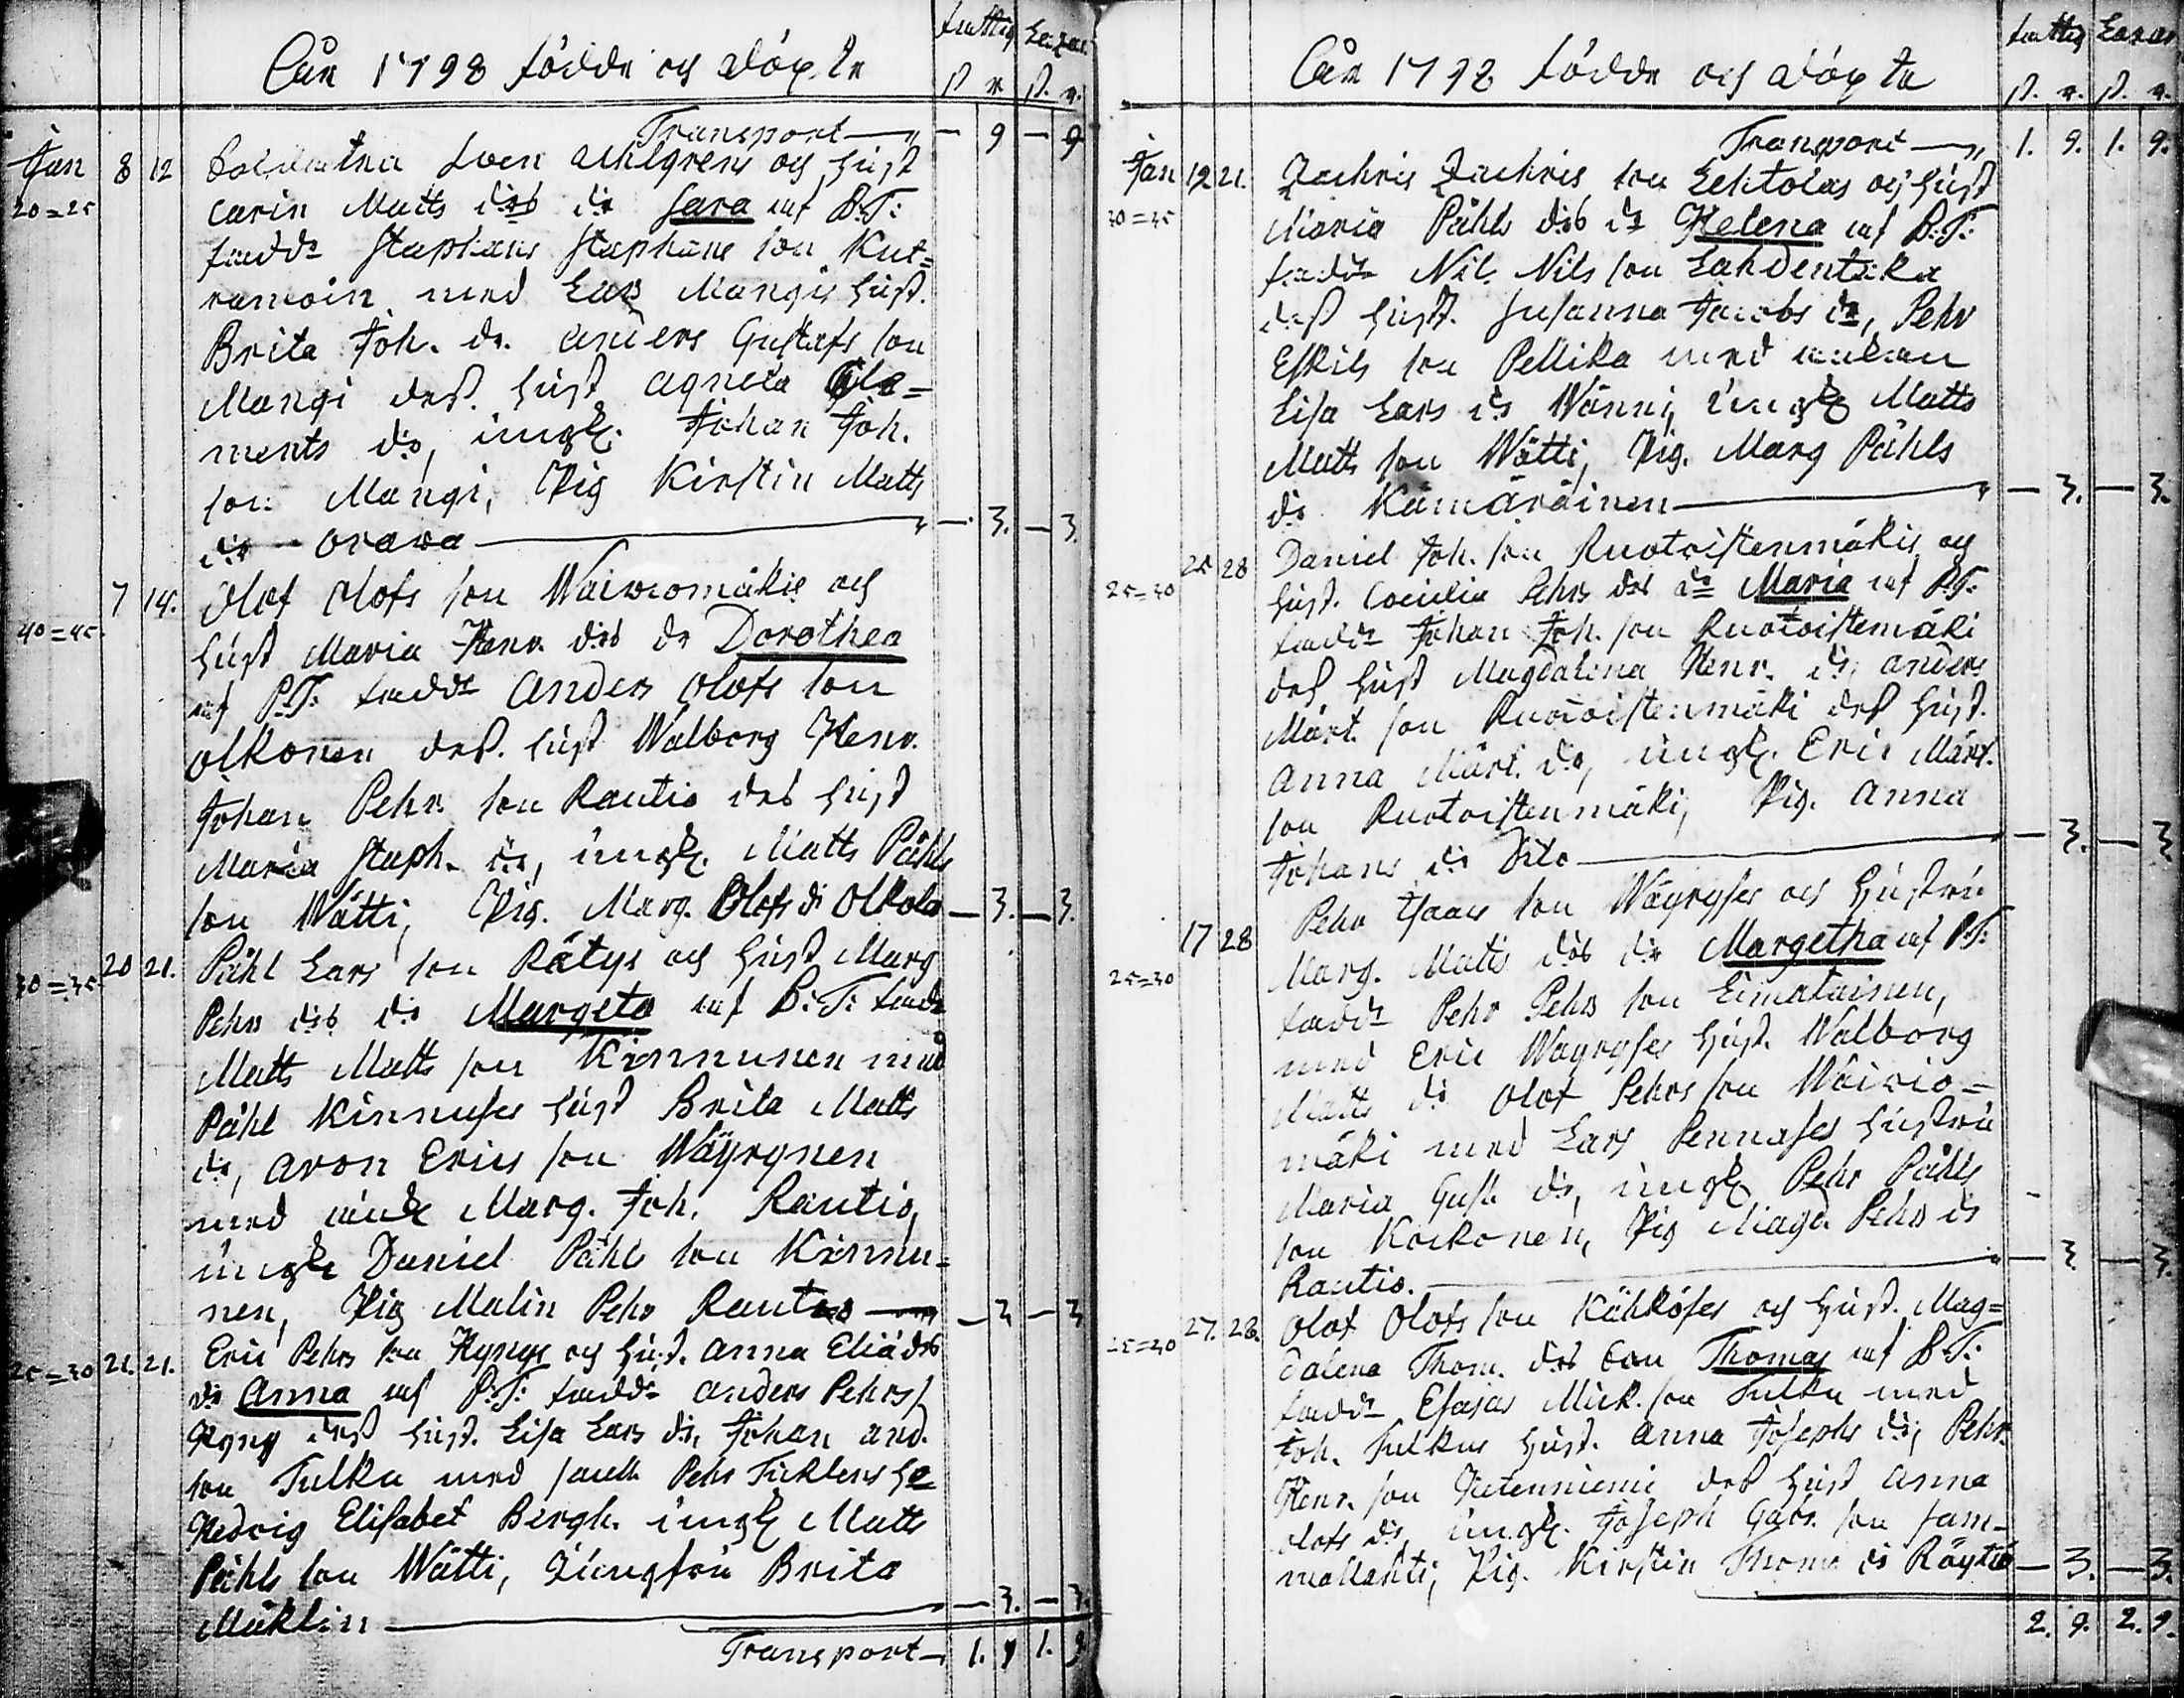 Åhr 1798 födde och döpte
fattig Lazar.
ß r ß. r.
Transport — 9 — 9
Jan 8 12 Soldaten Sven Ahlgrens och hust
20=25 Carin Matts dots dr Sara af B:F:
fadd: Staphans Staphans son Kut=
ramoin med Lars Mangis hust.
Brita Joh. dr. Anders Gustafs son
Mangi dess hust Agneta Cle=
ments dr, ungk. Johan Joh.
son Mangi, Pig Kirstin Matts
dr Orawa — 3. — 3.
7 14. Olof Olofs son Waiwiomäkis och
40=45 hust Maria Henr. dots dr Dorothea
af B:F: fadd: Anders Olofs son
Olkonen dess hust Walborg Henr.
Johan Pehrs son Rautio des hust
Maria Staph. dr, ungk. Matts Påhls
son Wätti, Pig. Marg. Olofs dr Olkola — 3. — 3.
20 21. Påhl Lars son Rätys och hust Marg
30=35 Pehrs dots dr Margeta af B:F: fadd:
Matts Matts son Kinnunen med
Påhl Kinnuses hust Brita Matts
dr, Aron Erics son Wäyrynen
med enk Marg. Joh. Rautio,
ungk Daniel Påhls son Kinnu=
nen, Pig Malin Pehr Rautio — 3 — 3
25=30 21. 21. Eric Pehrs son Hynys och hust. Anna Eliæ dots
dr Anna af B:F: fadd: Anders Pehrs s
Hyny dess hust. Lisa Lars dr, Johan And.
son Tulka med Pehr
Hedvig Elisabet Bergh. ungk Matts
Påhls son Wätti, Jungfru Brita
Mäklin — 3. — 3.
Transport 1. 9 1. 9
Åhr 1798 födde och döpta
fattig Lazar
ß. r. ß. r.
Transport 1. 9. 1. 9.
Jan 19 21. Zachris Zachris son Lehtolas och hust
30=35 Maria Påhls dots dr Helena af B:F:
fadd: Nils Nils son Lahdentaka
dess hust. Susanna Jacobs dr, Pehr
Eskils son Pellika med enkan
Lisa Lars dr Wänni, ungk Matts
Matts son Wätti, Pig. Marg Påhls
dr Kämäräinen — 3. — 3.
25 28 Daniel Joh. son Ruotoistenmäkis och
25=30 hust. Coecilia Pehrs dots dr Maria af B:F:
fadd: Johan Joh. son Ruotoistenmäki
dess hust Magdalena Henr. dr, Anders
Mårt. son Ruotoistenmäki dess hust.
Anna Mårt. dr, ungk. Eric Mårt.
son Ruotoistenmäki, Pig. Anna
Johans dr Dito — 3. — 3.
17 28 Pehr Isaacs son Wäyryses och hustru
25=30 Marg. Matts dots dr Margetha af B:F:
fadd: Pehr Pehrs son Liimatainen,
med Eric Wäyryses hust. Walborg
Matts dr Olof Pehrs son Waiwio=
mäki med Lars Pennases hustru
Maria Gust. dr, ungk Pehr Påhls
son Kockonen, Pig Magd. Pehrs dr
Rautio. — 3 — 3.
25=30 27. 28. Olof Olofs son Kähköses och hust. Mag=
dalena Thom. dots son Thomas af B:F:
fadd: Esaias Mick. son Tulka med
Joh. Tulkus hust. Anna Josephs dr, Pehr
Henr. son dess hust Anna
Olofs dr, ungk. Joseph Gabr. son Sam=
mallahti, Pig. Kirstin Thoma dr Räytiö — 3. — 3.
2. 9. 2. 9.